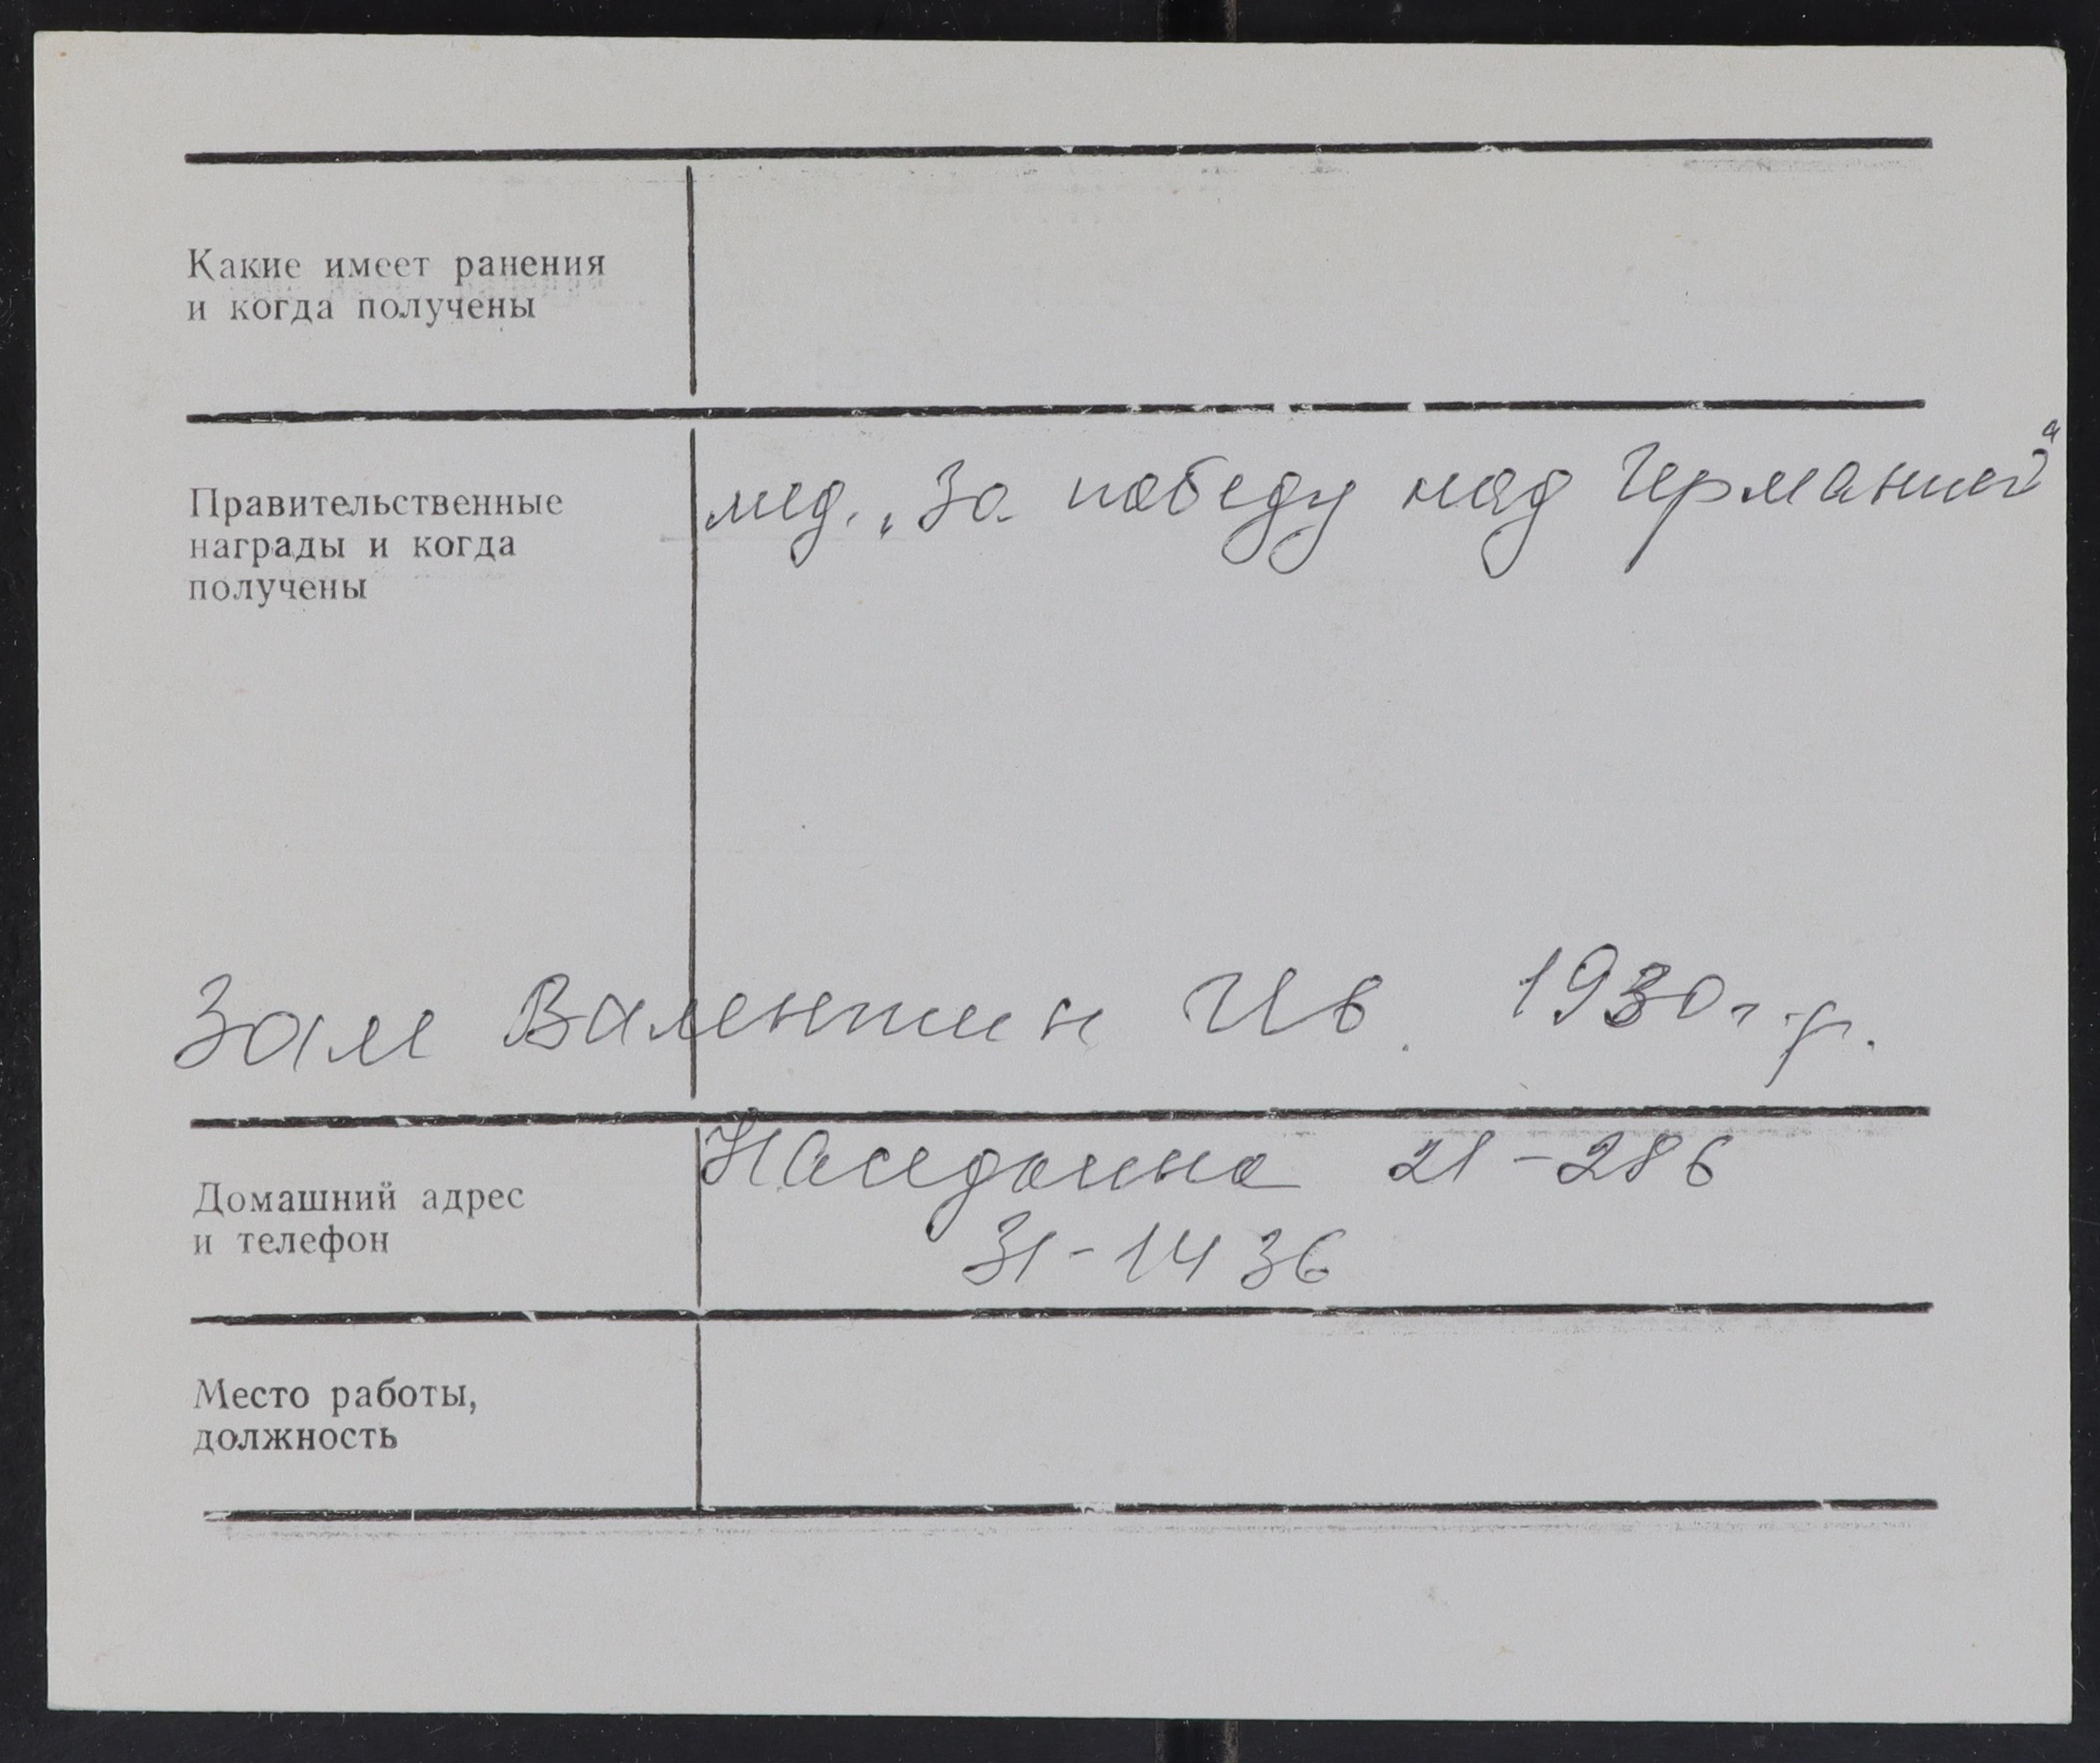 Какие имеет ранения
и когда получены
Правительственные
награды и когда
получены
мед. „За победу над Германией“
Зам Валентин Ив. 1930 г.р.
Домашний адрес
и телефон
21-286
31-1436
Место работы,
должность